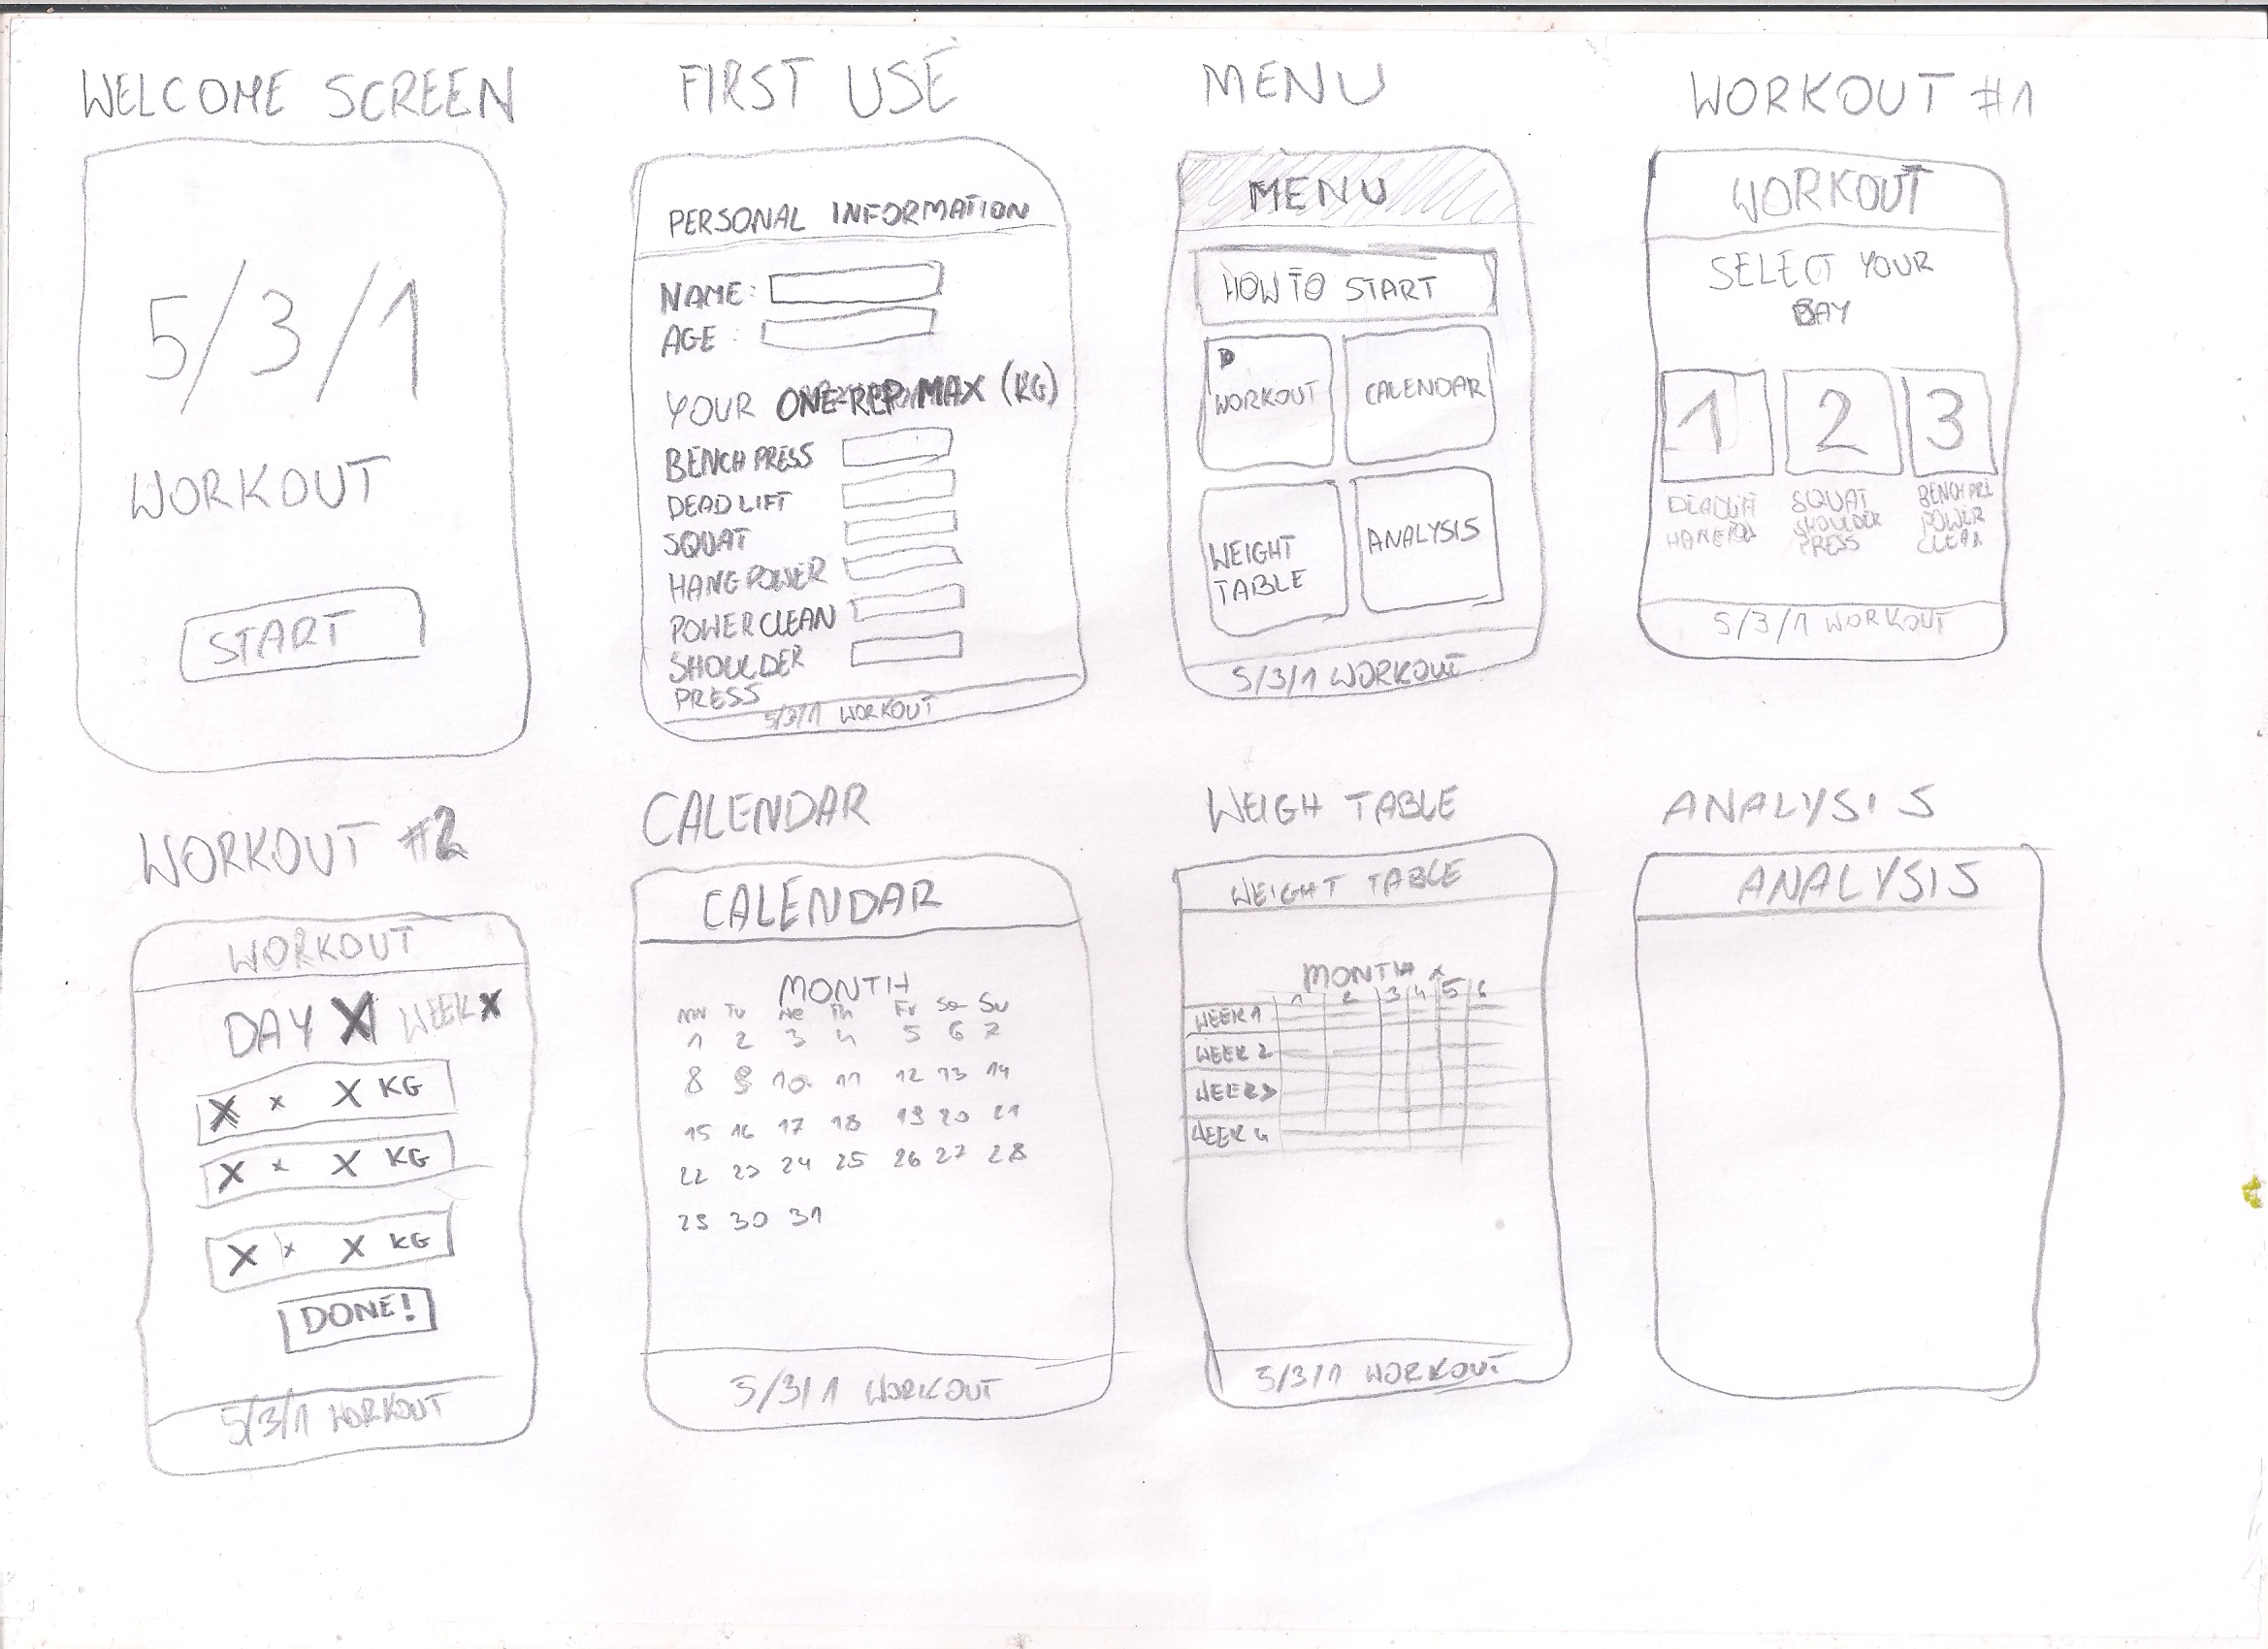 WELCOME SCREEN
5/3/1
WORKOUT
START
FIRST USE
PERSONAL INFORMATION
NAME:
AGE:
YOUR ONE REP MAX (KG)
BENCH PRESS
DEADLIFT
SQUAT
HANG POWER
POWER CLEAN
SHOULDER
PRESS
5/3/1 WORKOUT
MENU
MENU
HOW TO START
WORKOUT
CALENDAR
WEIGHT
TABLE
ANALYSIS
5/3/1 WORKOUT
WORKOUT #1
WORKOUT
SELECT YOUR
DAY
1 2 3
DEADLIFT
SQUAT
SHOULDER
PRESS
BENCH
POWER
CLEAN
5/3/1 WORKOUT
WORKOUT #2
WORKOUT
DAY X WEEK X
X x X KG
X x X KG
X x X KG
DONE!
5/3/1 WORKOUT
CALENDAR
CALENDAR
MONTH
Mo Tu We Th Fr Sa Su
1 2 3 4 5 6 7
8 9 10 11 12 13 14
15 16 17 18 19 20 21
22 23 24 25 26 27 28
29 30 31
5/3/1 WORKOUT
WEIGH TABLE
WEIGHT TABLE
MONTH x
1 2 3 4 5 6
WEEK 1
WEEK 2
WEEK 3
WEEK 4
5/3/1 WORKOUT
ANALYSIS
ANALYSIS